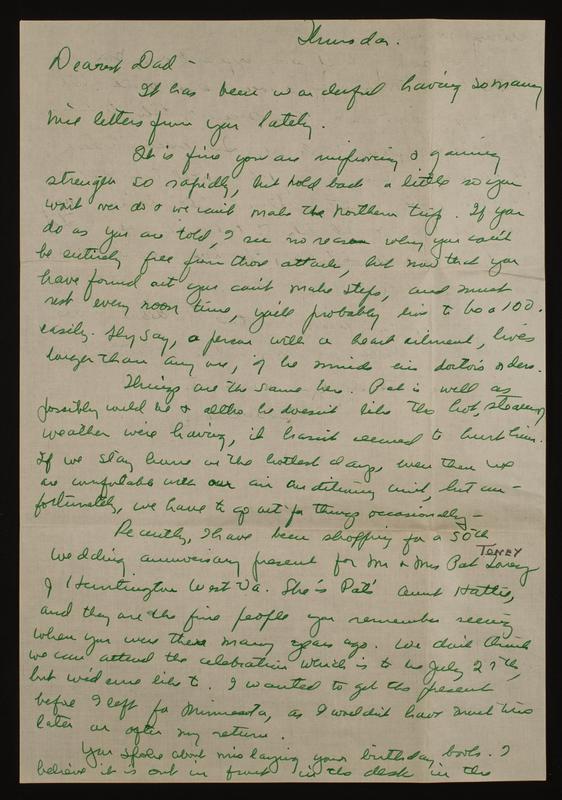 Thursday.
Dearest Dad -
It has been wonderful having so many
nice letters from you lately.
It is fine you are improving & gaining
strength so rapidly, but hold back a little so you
wont over do & we can't make the Northern trip. If you
do as you are told, I see no reason why you can't
be entirely free from those attacks, but now that you
have found out you can't make steps, and must
rest every noon time, you'll probably live to be a 100.
easily. They say, a person with a heart ailment, lives
longer than any one, if he minds his doctor's orders.
Things are the same here. Pat is well as
possibly could be & altho he doesn't like the hot, steaming
weather we're having, it hasn't seemed to hurt him.
If we stay home on the hottest days, even then we
are comfortable with our air conditioning unit, but un-
fortunately, we have to go out for things occasionally -
Recently, I have been shopping for a 50th
wedding anniversary present for Mr & Mrs Pat Toney
TONEY
of Huntington West Va. She's Pat's aunt Hattie,
and they are the fine people you remember seeing
when you were there many years ago. We don't think
we can attend the celebration which is to be July 27th,
but we'd sure like to. I wanted to get the present
before I left for Minnesota, as I wouldn't have much time
later or after my return.
You spoke about mislaying your birthday books. I
believe it is out in front in the desk in the